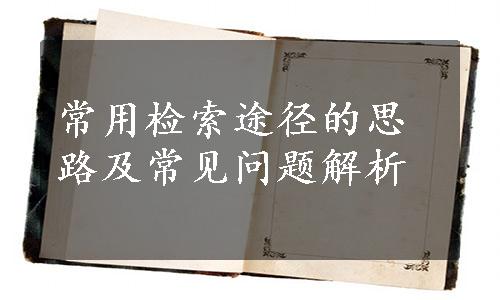 常用检索途径的思
路及常见问题解析